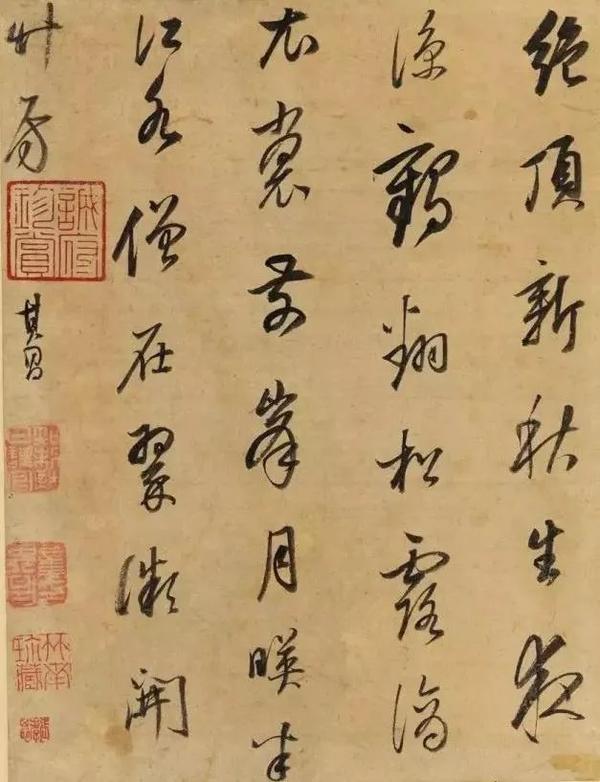 絕頂新秋生夜
涼鶴翻松露滴
衣裳前峯月暎半
江水僧在翠微開
竹房
其昌